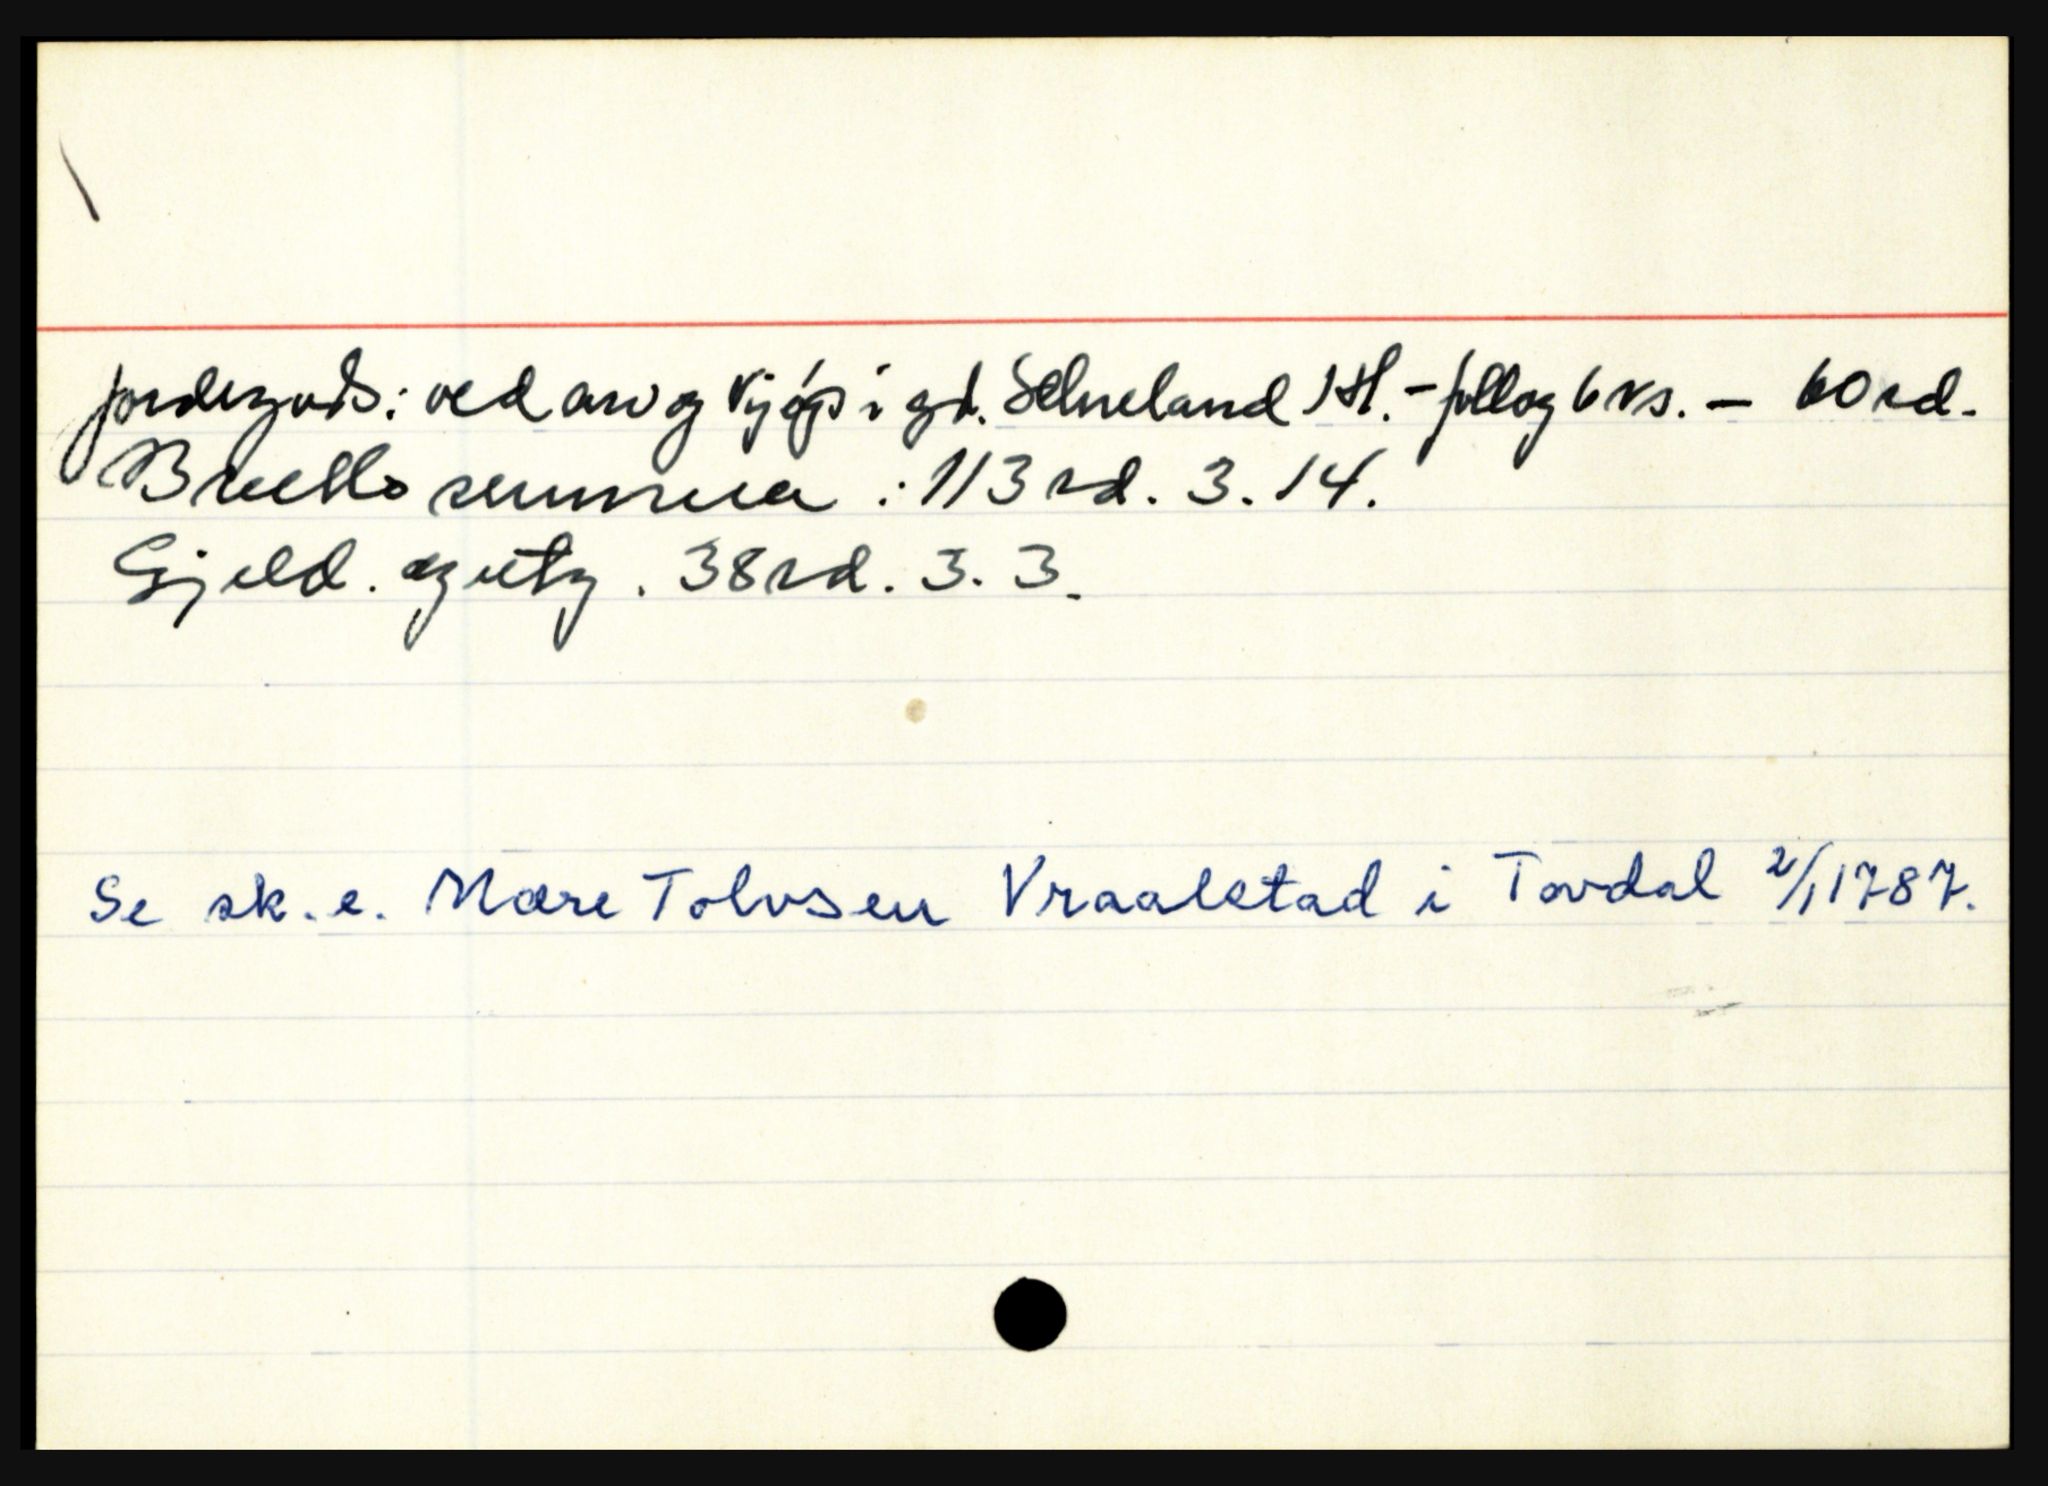 Jordegods: ved arv og kjøp i gd. Selneland 1 H. - foll og 6 ks. - 60 rd.
Brutto summa : 113 rd. 3. 14.
Gjeld. og utg. 38 rd. 3. 3.
Se sk. e. Mære Tolvsen Vraalstad i Tovdal 2/1 1787.